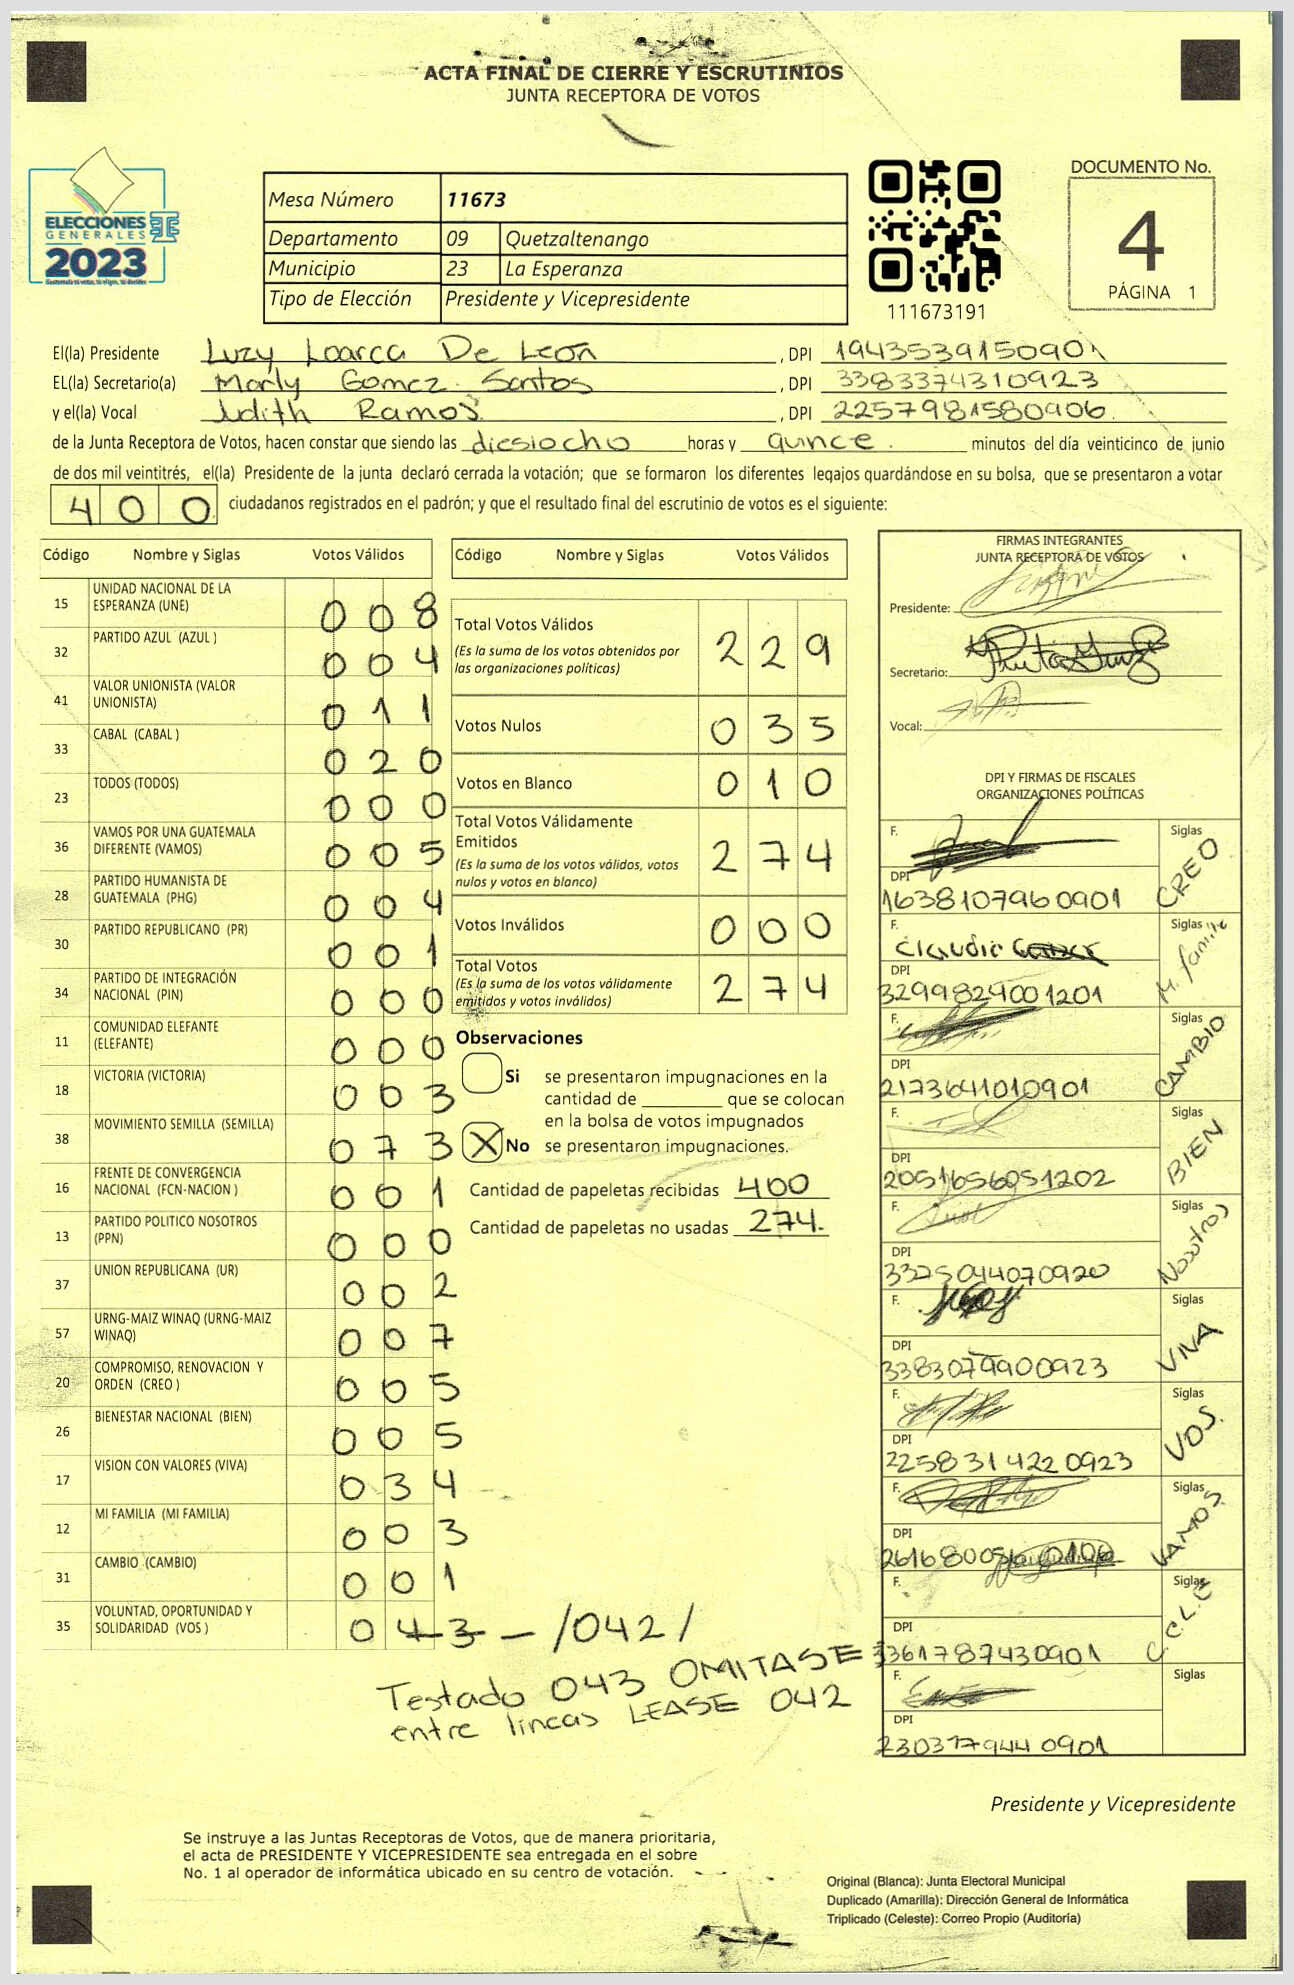 ACTA FINAL DE CIERRE Y ESCRUTINIOS
JUNTA RECEPTORA DE VOTOS
ELECCIONES
GENERALES
2023
Mesa Número 11673
Departamento 09 Quetzaltenango
Municipio 23 La Esperanza
Tipo de Elección Presidente y Vicepresidente
111673191
DOCUMENTO No.
4
PÁGINA 1
El(la) Presidente Luzy Loarca De León , DPI 1943539150901
EL(la) Secretario(a) Marly Gomez Santos , DPI 3383374310923
y el(la) Vocal Judith Ramos , DPI 2257981580906
de la Junta Receptora de Votos, hacen constar que siendo las diesiocho horas y quince minutos del día veinticinco de junio
de dos mil veintitrés, el(la) Presidente de la junta declaró cerrada la votación; que se formaron los diferentes legajos guardándose en su bolsa, que se presentaron a votar
400 ciudadanos registrados en el padrón; y que el resultado final del escrutinio de votos es el siguiente:
Código Nombre y Siglas Votos Válidos
15 UNIDAD NACIONAL DE LA ESPERANZA (UNE) 008
32 PARTIDO AZUL (AZUL ) 004
41 VALOR UNIONISTA (VALOR UNIONISTA) 011
33 CABAL (CABAL ) 020
23 TODOS (TODOS) 000
36 VAMOS POR UNA GUATEMALA DIFERENTE (VAMOS) 005
28 PARTIDO HUMANISTA DE GUATEMALA (PHG) 004
30 PARTIDO REPUBLICANO (PR) 001
34 PARTIDO DE INTEGRACIÓN NACIONAL (PIN) 000
11 COMUNIDAD ELEFANTE (ELEFANTE) 000
18 VICTORIA (VICTORIA) 003
38 MOVIMIENTO SEMILLA (SEMILLA) 073
16 FRENTE DE CONVERGENCIA NACIONAL (FCN-NACION ) 001
13 PARTIDO POLITICO NOSOTROS (PPN) 000
37 UNION REPUBLICANA (UR) 002
57 URNG-MAIZ WINAQ (URNG-MAIZ WINAQ) 007
20 COMPROMISO, RENOVACION Y ORDEN (CREO ) 005
26 BIENESTAR NACIONAL (BIEN) 005
17 VISION CON VALORES (VIVA) 034
12 MI FAMILIA (MI FAMILIA) 003
31 CAMBIO (CAMBIO) 001
35 VOLUNTAD, OPORTUNIDAD Y SOLIDARIDAD (VOS ) 043 - /042/
Testado 043 OMITASE
entre lineas LEASE 042
Código Nombre y Siglas Votos Válidos
Total Votos Válidos 229
(Es la suma de los votos obtenidos por
las organizaciones políticas)
Votos Nulos 035
Votos en Blanco 010
Total Votos Válidamente
Emitidos 274
(Es la suma de los votos válidos, votos
nulos y votos en blanco)
Votos Inválidos 000
Total Votos 274
(Es la suma de los votos válidamente
emitidos y votos inválidos)
Observaciones
Si se presentaron impugnaciones en la
cantidad de ________ que se colocan
en la bolsa de votos impugnados
X No se presentaron impugnaciones.
Cantidad de papeletas recibidas 400
Cantidad de papeletas no usadas 274.
FIRMAS INTEGRANTES
JUNTA RECEPTORA DE VOTOS
Presidente:
Secretario:
Vocal:
DPI Y FIRMAS DE FISCALES
ORGANIZACIONES POLÍTICAS
F. Siglas CREO
DPI
1638107960901
F. Claudia Siglas M. familia
DPI
3299829001201
F. Siglas CAMBIO
DPI
2173641010901
F. Siglas BIEN
DPI
2051656051202
F. Siglas Nosotros
DPI
3325044070920
F. Siglas VIVA
DPI
3383079900923
F. Siglas VOS.
DPI
2258314220923
F. Siglas VAMOS.
DPI
F. Siglas
DPI
3361787430901
F. Siglas
DPI
2303179440901
Presidente y Vicepresidente
Se instruye a las Juntas Receptoras de Votos, que de manera prioritaria,
el acta de PRESIDENTE Y VICEPRESIDENTE sea entregada en el sobre
No. 1 al operador de informática ubicado en su centro de votación.
Original (Blanca): Junta Electoral Municipal
Duplicado (Amarilla): Dirección General de Informática
Triplicado (Celeste): Correo Propio (Auditoría)